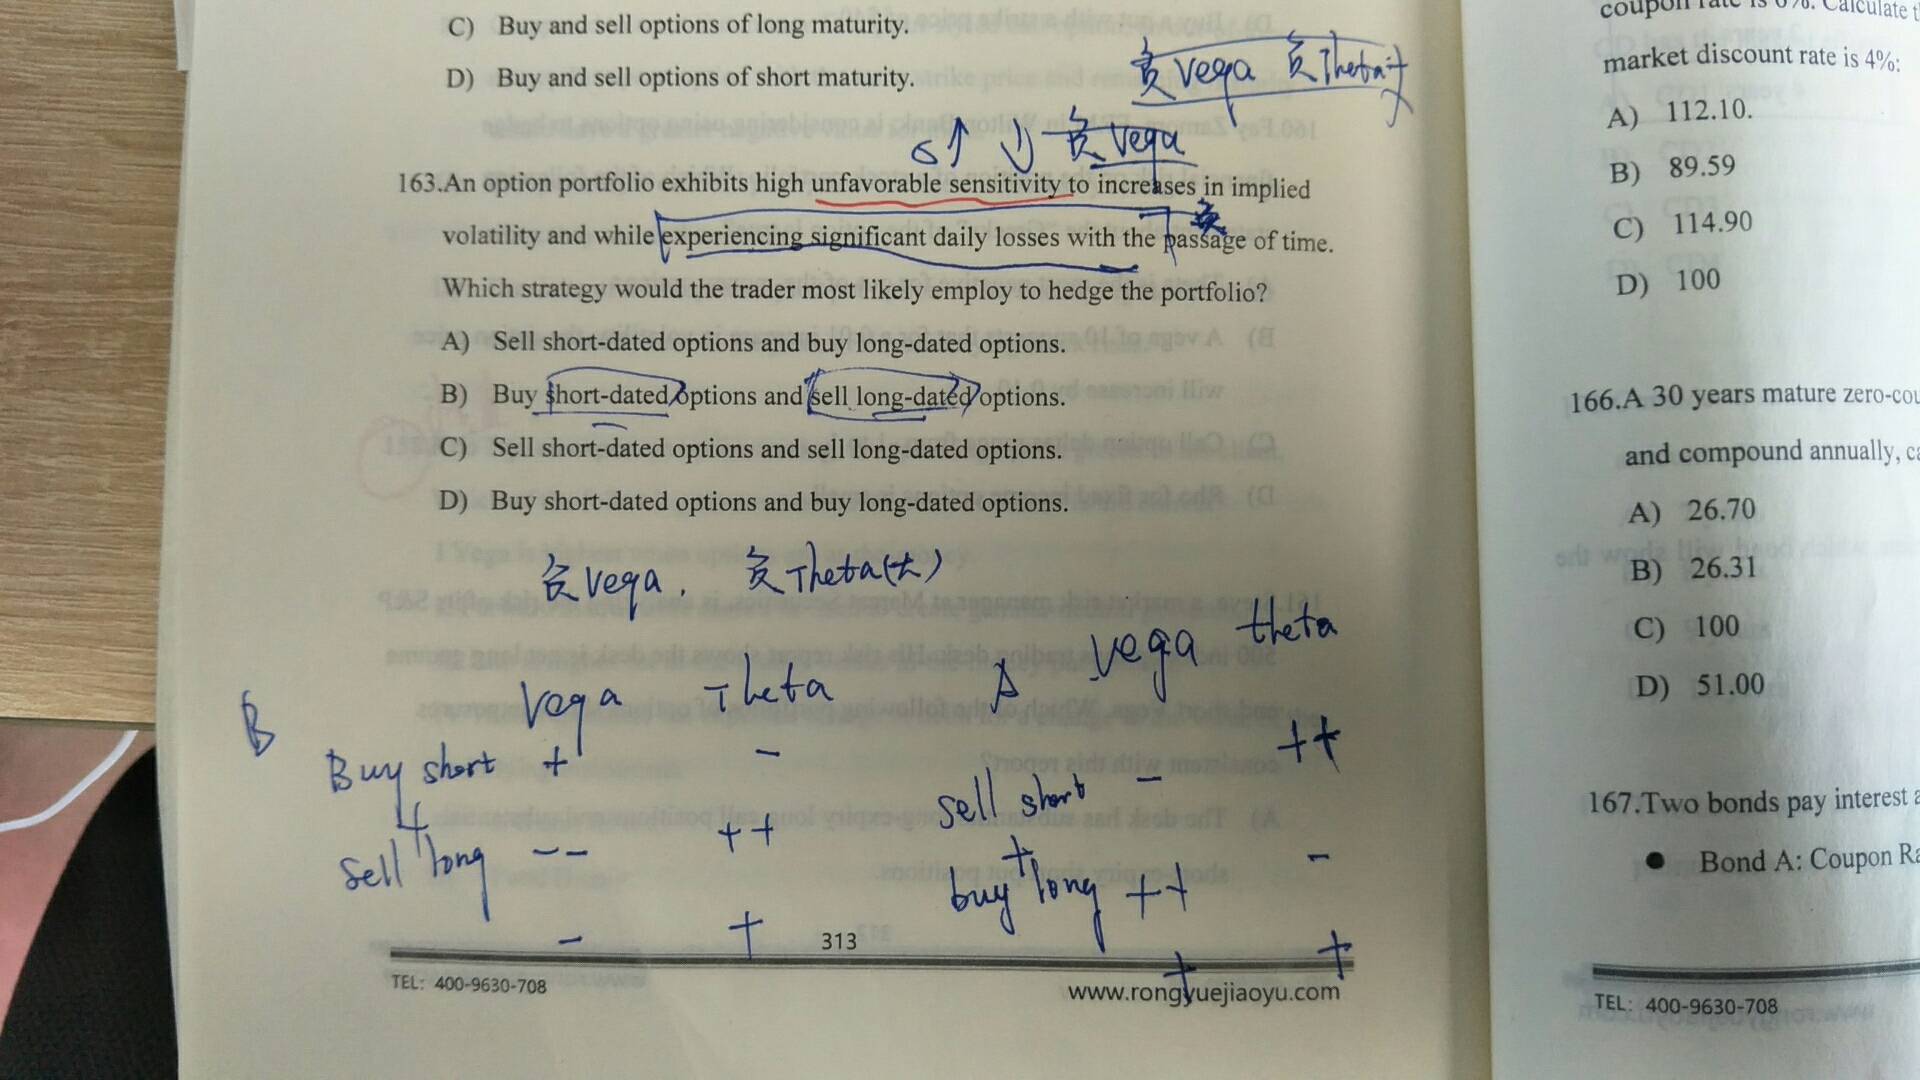 C) Buy and sell options of long maturity.
D) Buy and sell options of short maturity.
负 vega 负 Theta大
σ↑ ↓ 负 Vega
163.An option portfolio exhibits high unfavorable sensitivity to increases in implied
负
volatility and while experiencing significant daily losses with the passage of time.
Which strategy would the trader most likely employ to hedge the portfolio?
A) Sell short-dated options and buy long-dated options.
B) Buy short-dated options and sell long-dated options.
C) Sell short-dated options and sell long-dated options.
D) Buy short-dated options and buy long-dated options.
负 vega. 负 Theta(大)
B Vega Theta
Buy short + -
+
Sell long -- ++
- +
A vega theta
sell short - ++
+
buy long ++ -
+ +
313
TEL: 400-9630-708
www.rongyuejiaoyu.com
coupon rate is 6%. Calculate
market discount rate is 4%:
A) 112.10.
B) 89.59
C) 114.90
D) 100
166.A 30 years mature
and compound annually,
A) 26.70
B) 26.31
C) 100
D) 51.00
167.Two bonds pay interest
● Bond A: Coupon
TEL: 400-9630-708